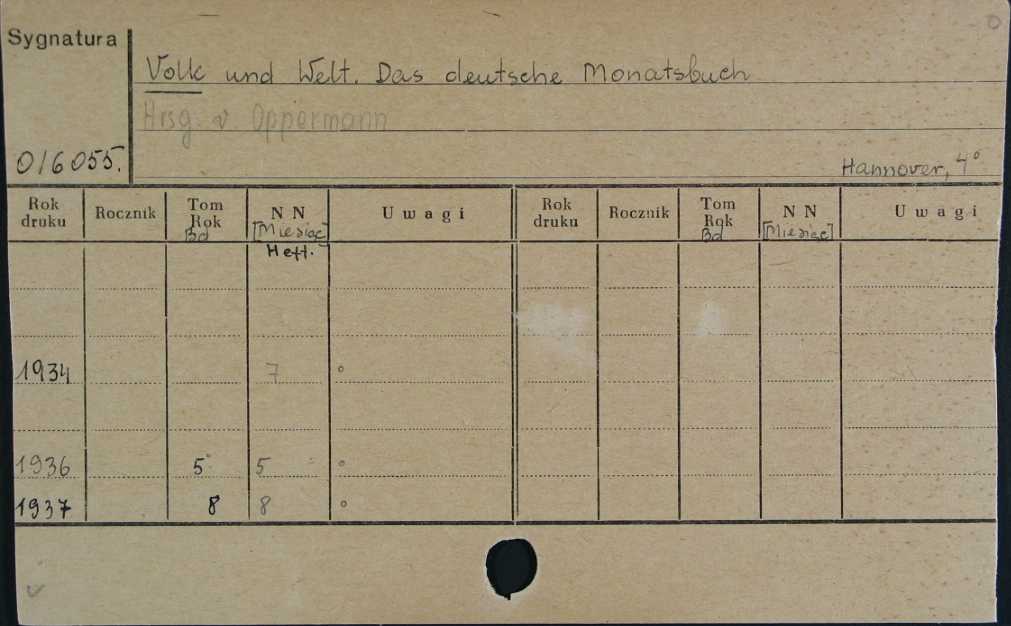 Sygnatura
Volk und Welt. Das deutsche Monatsbuch
Hrsg. v. Oppermann
016055.
Hannover, 4°
Rok druku Rocznik Tom Rok Bd N N [Miesiąc] Heft. Uwagi Rok druku Rocznik Tom Rok Bd N N [Miesiąc] Uwagi
1934 7 °
1936 5 5 °
1937 8 8 °